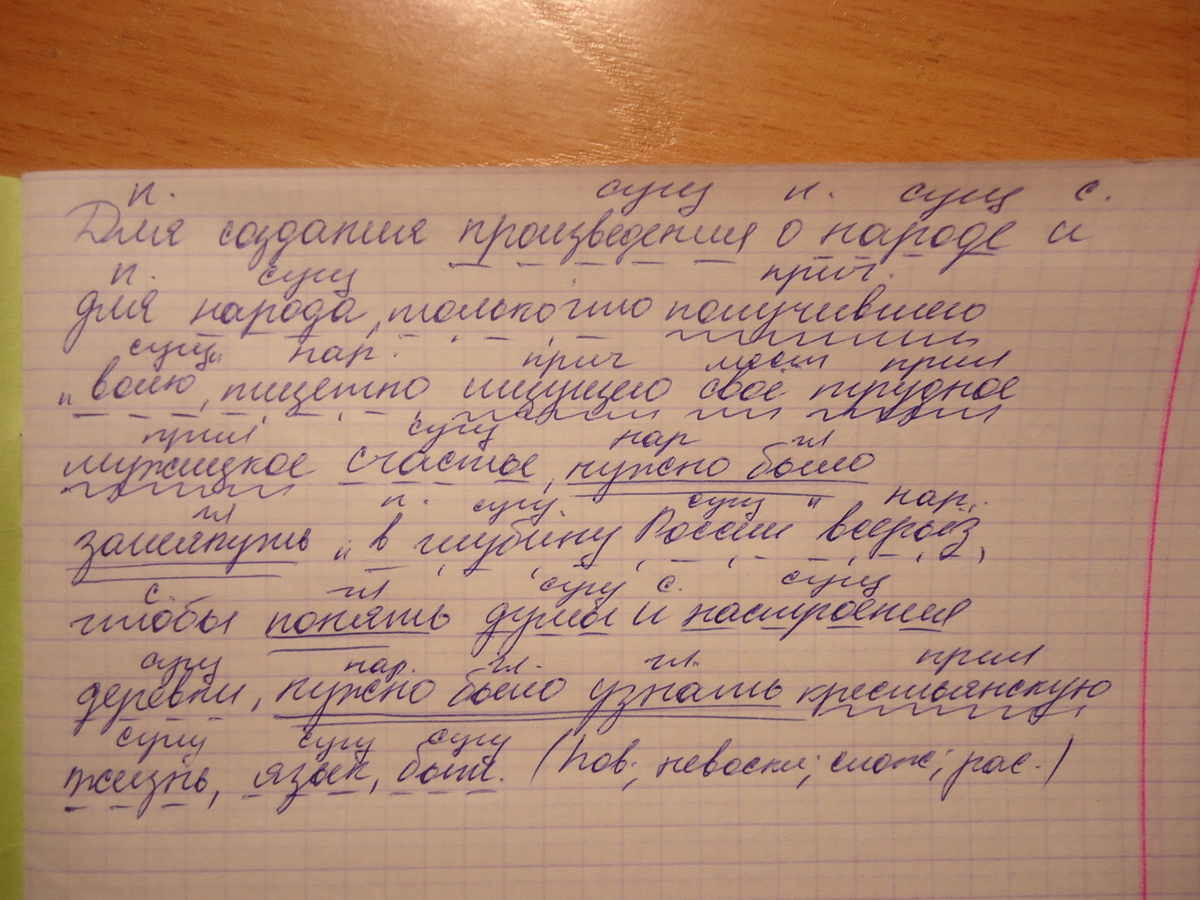 п. сущ п. сущ с.
Для создания произведения о народе и
п. сущ прич.
для народа, только что получившего
сущ нар. прич мест прил
"волю", тщетно ищущего своё трудное
прил сущ нар гл
мужицкое счастье, нужно было
гл п. сущ. сущ нар.
заглянуть "в глубину России" всерьез,
с. гл сущ с. сущ
чтобы понять думы и настроения
сущ нар. гл. гл. прил
деревни, нужно было узнать крестьянскую
сущ сущ сущ
жизнь, язык, быт. (Пов.; невоскл; слож; рас.)